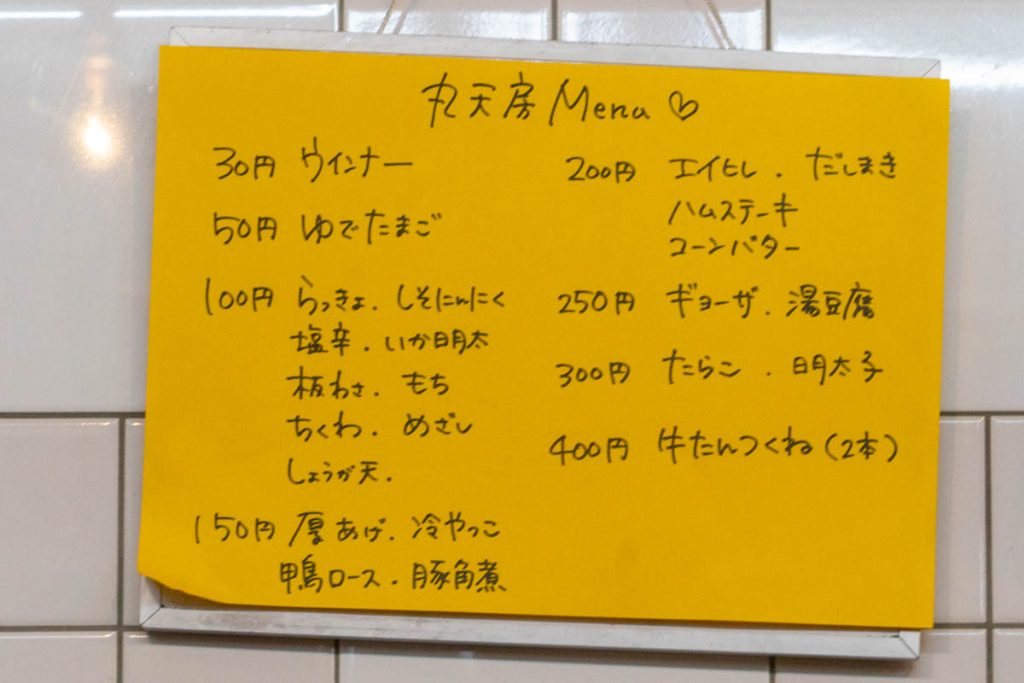 丸天房 Menu ♡
30円 ウインナー
50円 ゆでたまご
100円 らっきょ．しそにんにく
塩辛．いか明太
板わさ．もち
ちくわ．めざし
しょうが天．
150円 厚あげ．冷やっこ
鴨ロース．豚角煮
200円 エイヒレ．だしまき
ハムステーキ
コーンバター
250円 ギョーザ．湯豆腐
300円 たらこ．明太子
400円 牛たんつくね(2本)